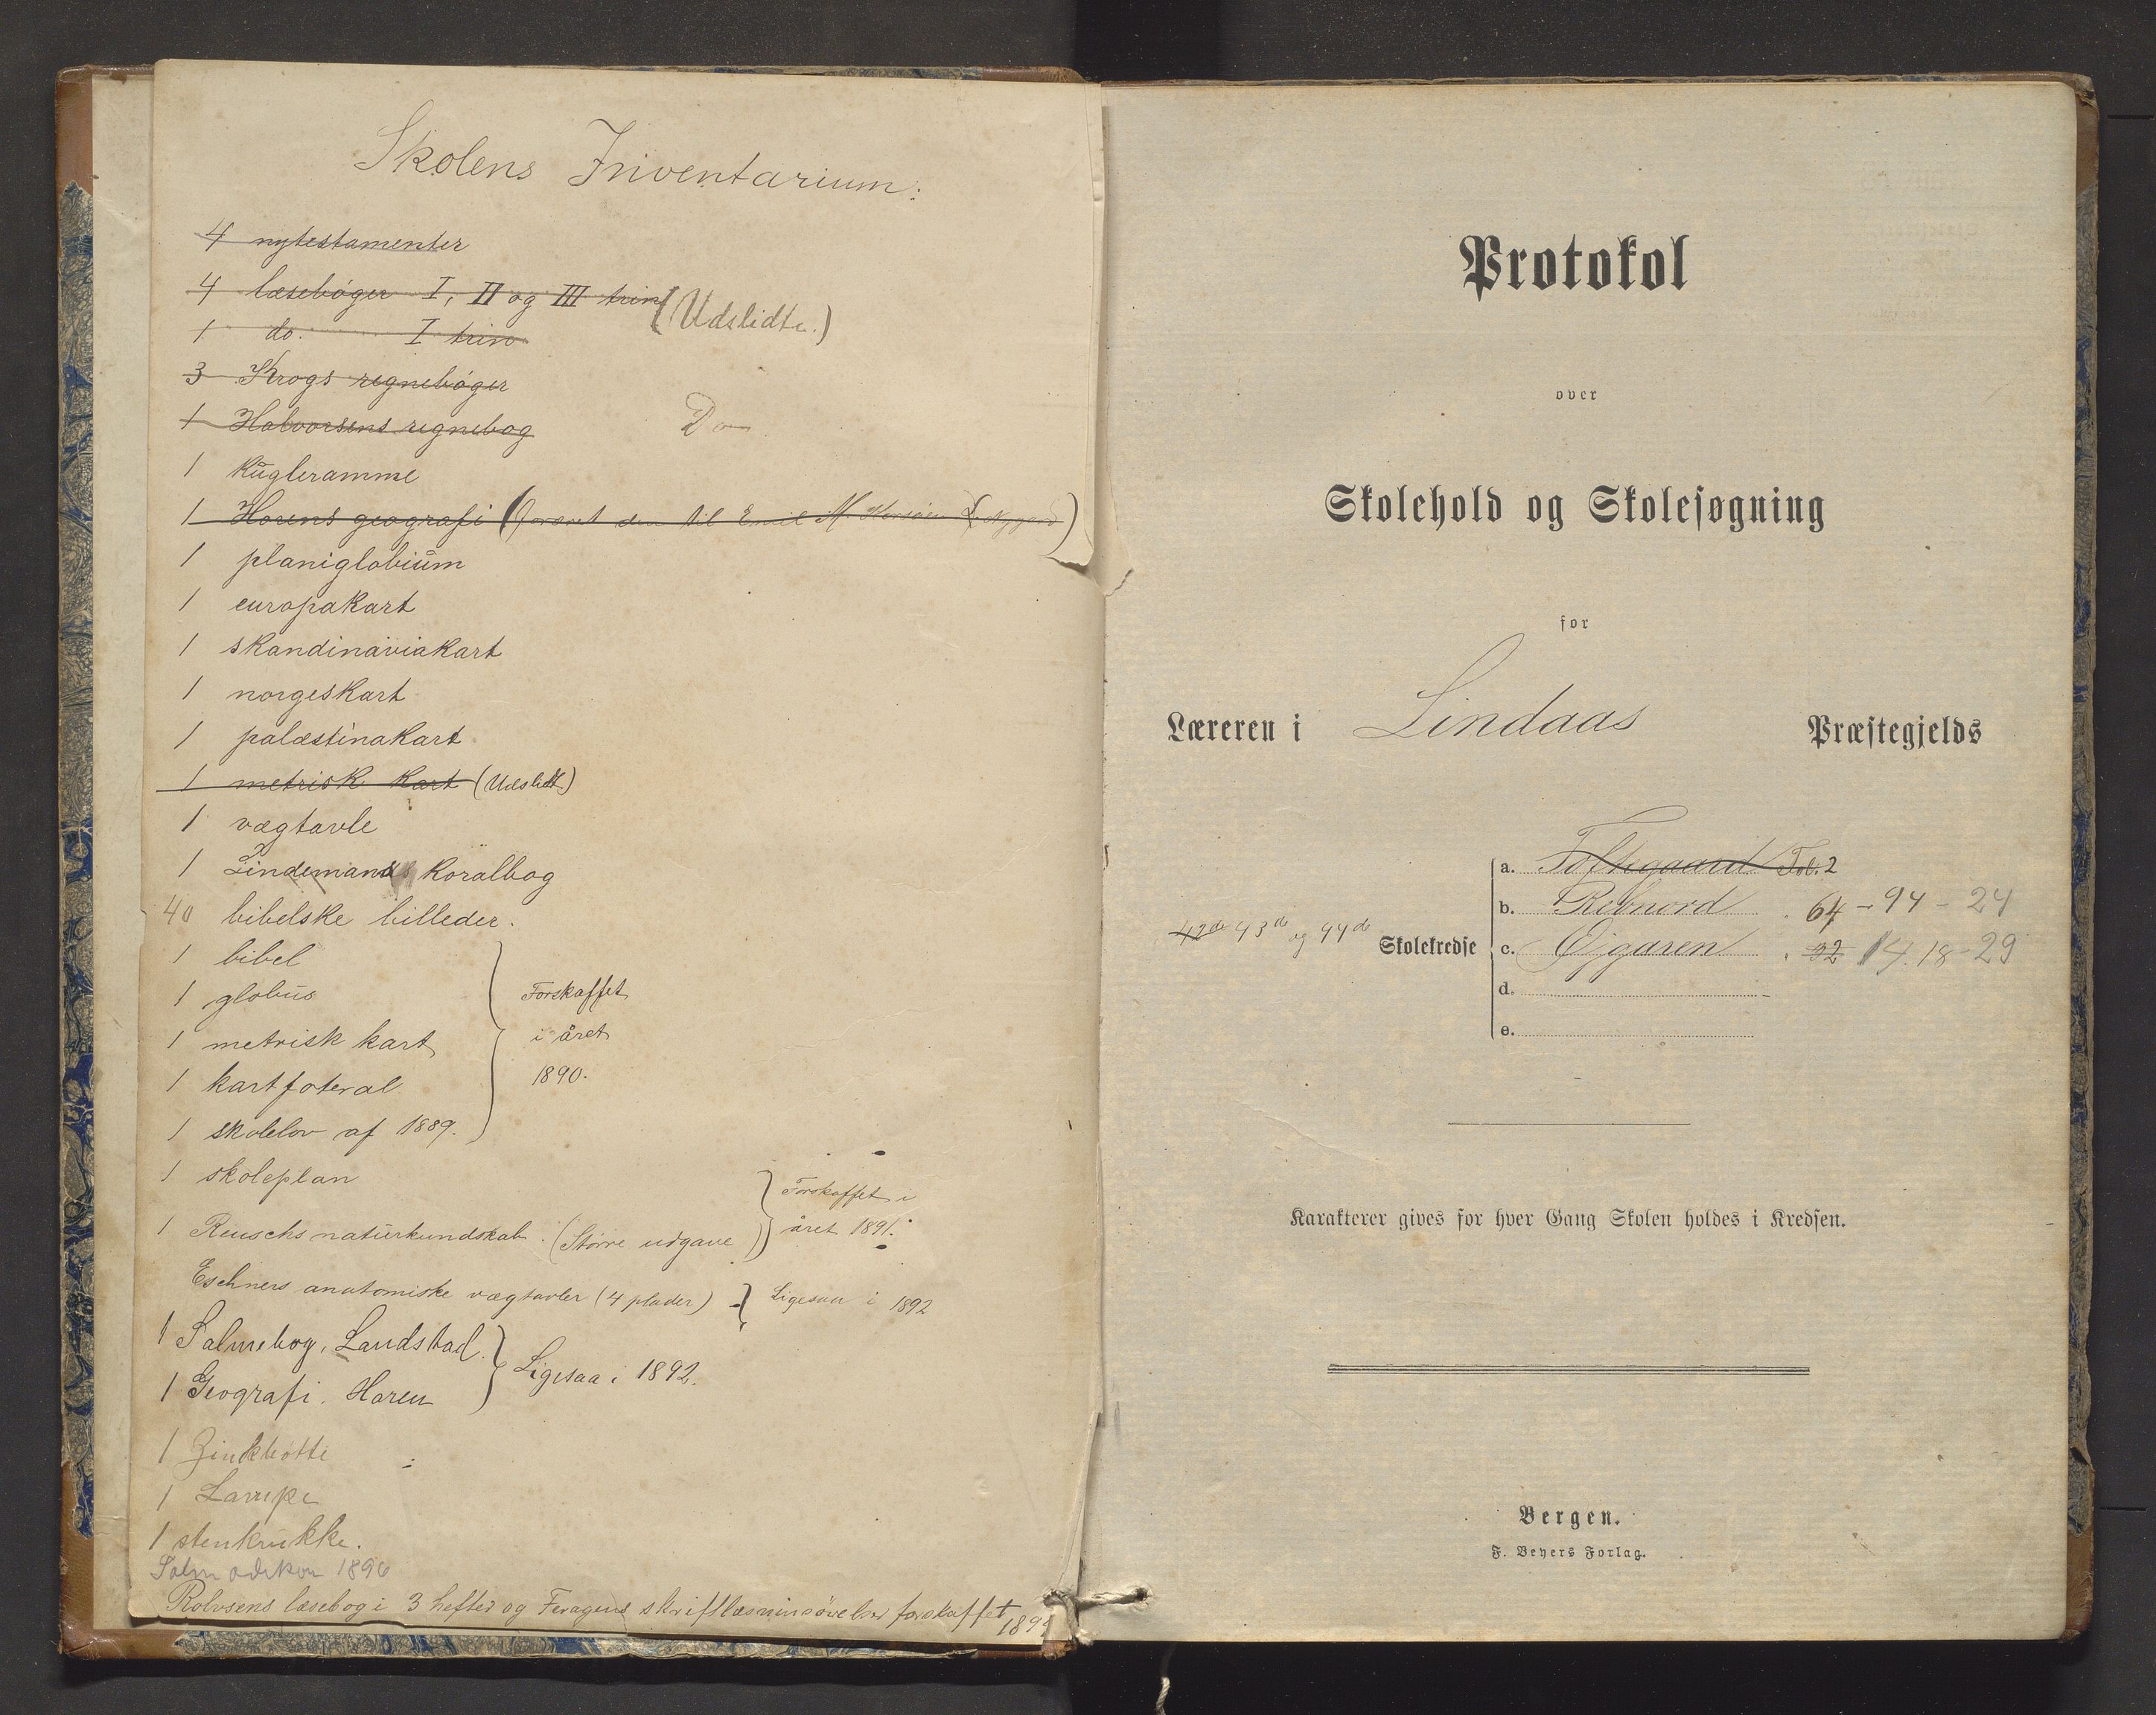 Skolens Inventarium:
4 nytestamenter
4 læsebøger I, II og III trin (Udslidte.)
1 do. I trin
3 Krogs regnebøger
1 Halvorsens regnebog Do
1 kugleramme
1 Horens geografi (foræret den til Emil M.
1 planiglobium
1 europakart
1 skandinaviakart
1 norgeskart
1 palæstinakart
1 metrisk kart (Udslidt)
1 vægtavle
1 Lindemans koralbog
40 bibelske billeder.
1 bibel
1 globus
1 metrisk kart
1 kartfoteral
1 skolelov af 1889.
Forskaffet
i året
1890.
1 skoleplan
1 Reuschs naturkundskab. (Større udgave)
Forskaffet i
året 1891.
Eschners anatomiske vægtavler (4 plader) Ligesaa i 1892
1 Salmebog, Landstad.
1 Geografi. Horen
Ligesaa i 1892.
1 Zinkbotte
1 Lampe
1 stenkrukke.
1896
Rolvsens læsebog i 3 hefter og skriftlæsningsøvelser forskaffet
Protokol
over
Skolehold og Skolesøgning
for
Læreren i Lindaas Præstegjelds
42de 43de og 44de Skolekredse
a. Foltegaard Fol. 2
b. Risnord . 64 - 94 - 24
c. Øjgaren . 32 14. 18 - 29
d.
e.
Karakterer gives for hver Gang Skolen holdes i Kredsen.
Bergen.
F. Beyers Forlag.